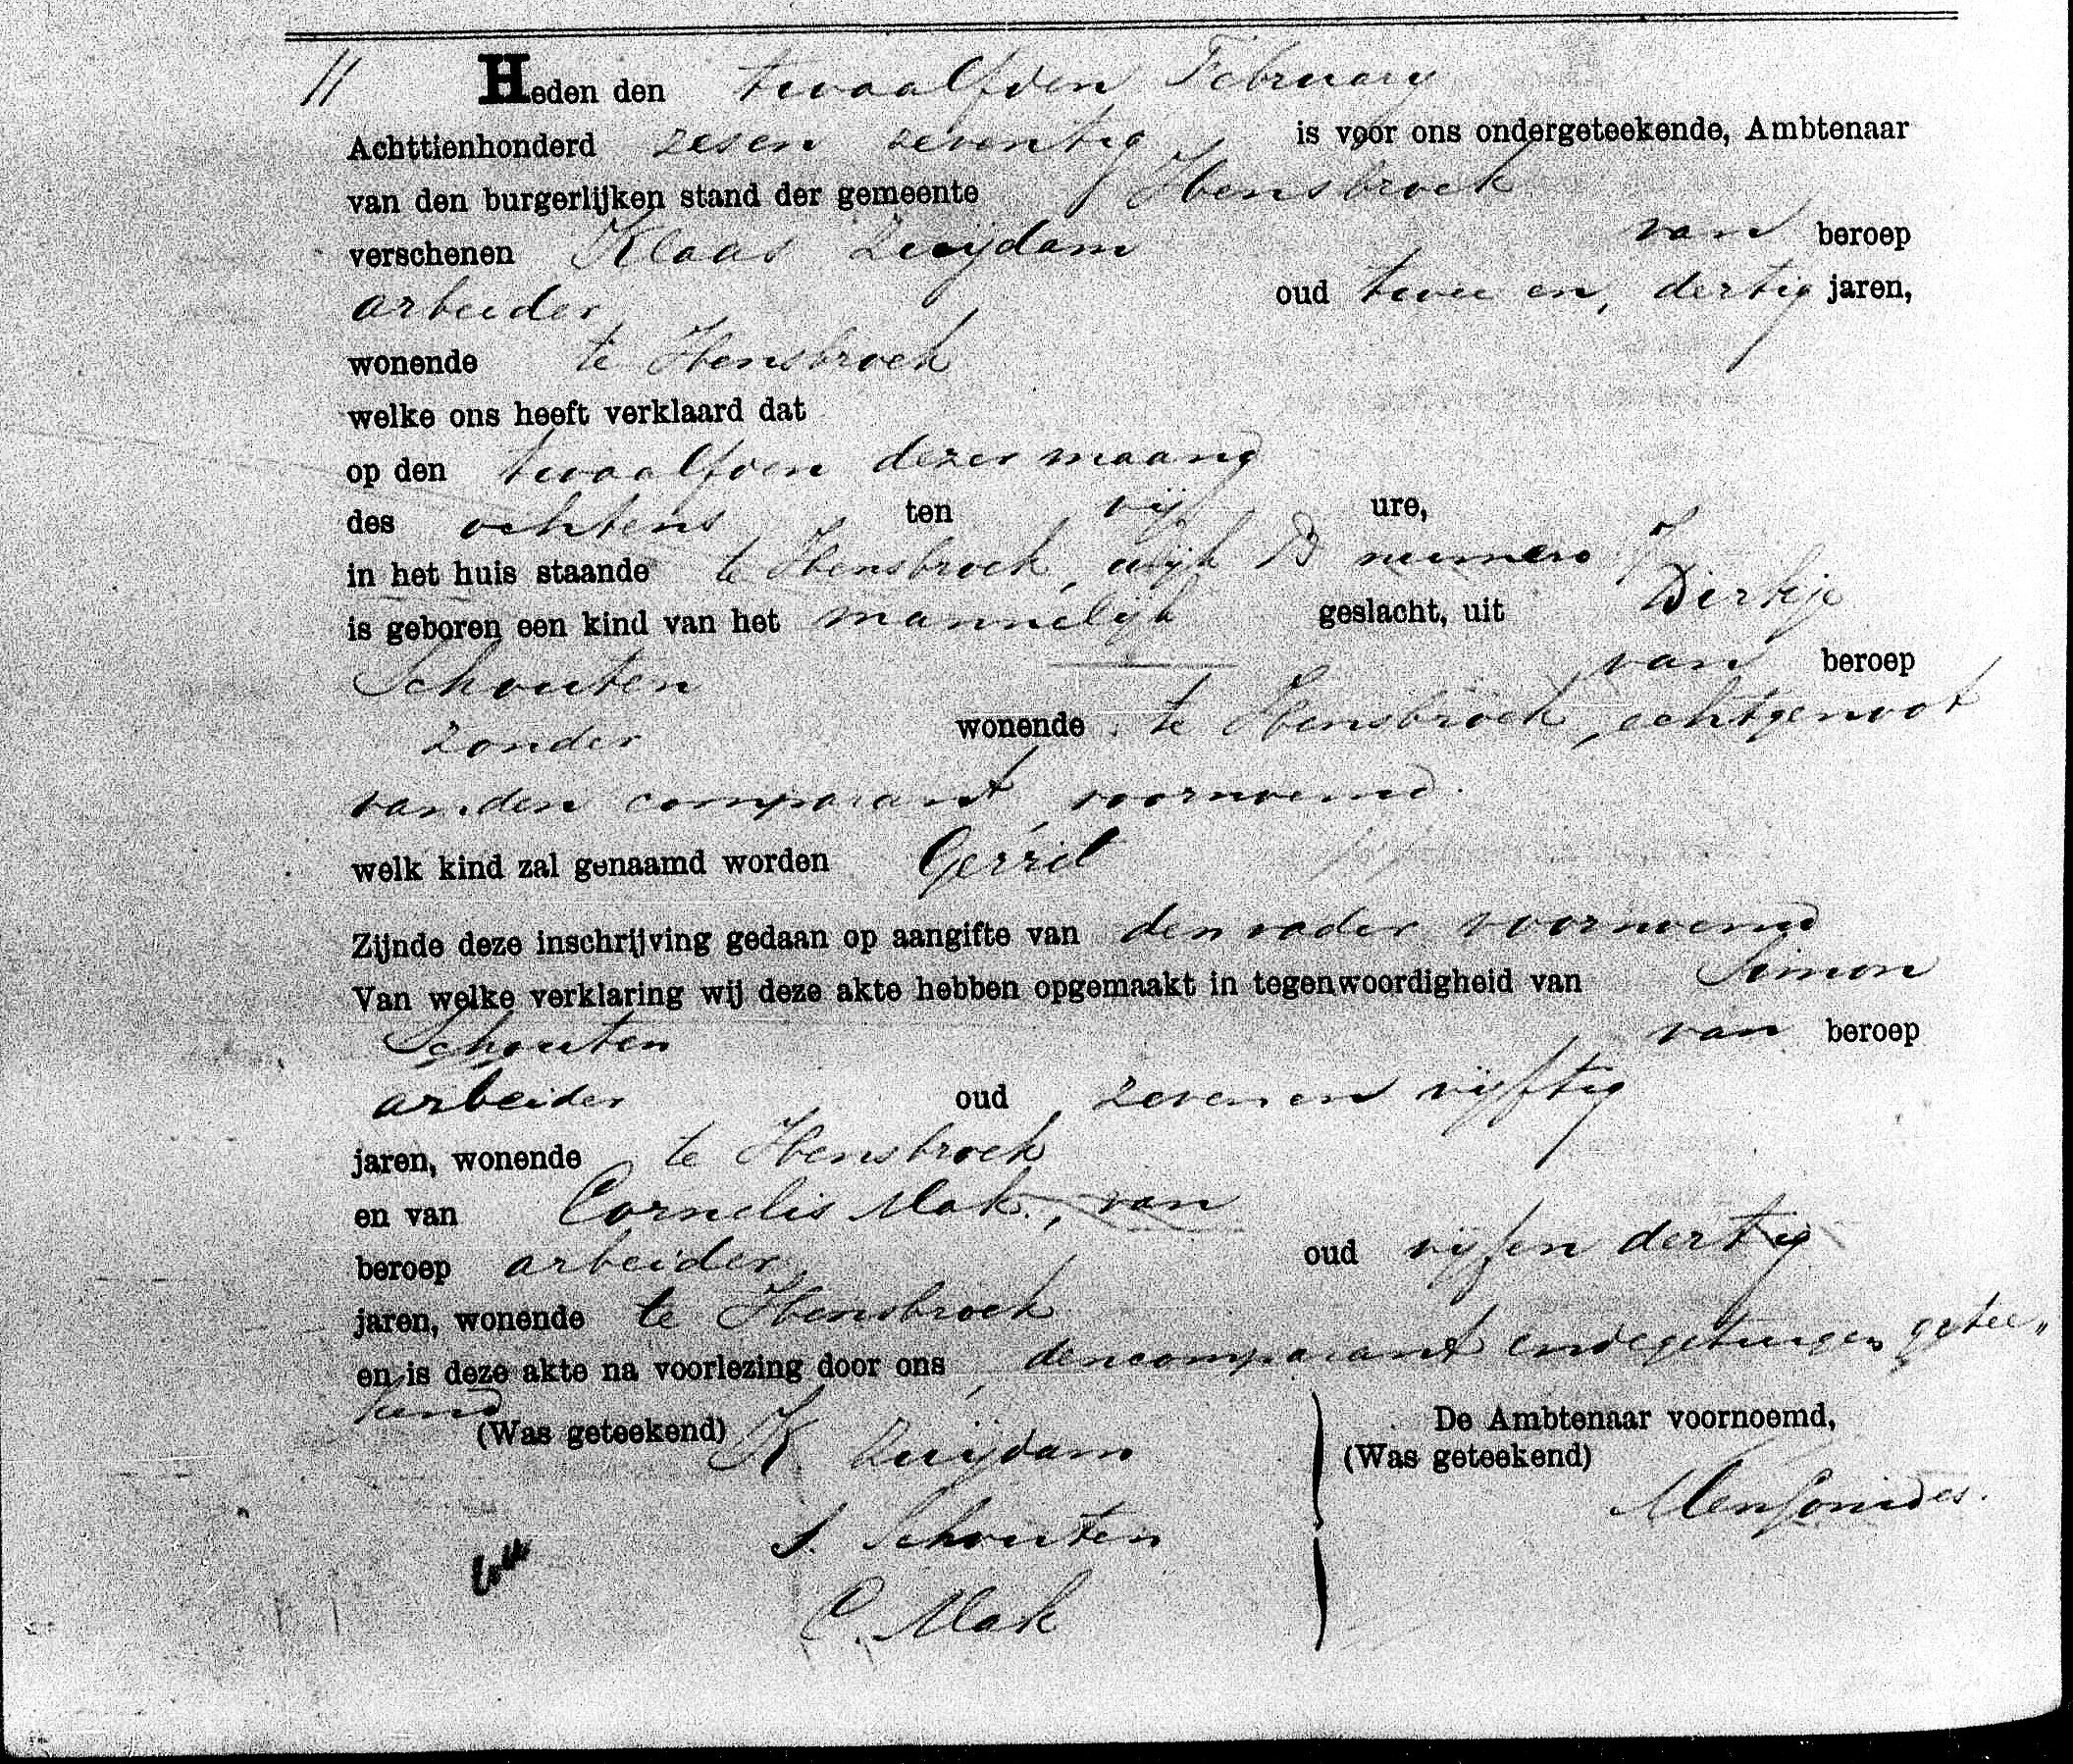 11 Heden den twaalfden February
Achttienhonderd zesen zeventig is voor ons ondergeteekende, Ambtenaar
van den burgerlijken stand der gemeente Hensbroek
verschenen Klaas Zuijdam van beroep
arbeider oud twee en dertig jaren,
wonende te Hensbroek
welke ons heeft verklaard dat
op den twaalfden dezer maand
des ochtens ten vijf ure,
in het huis staande te Hensbroek, wijk B numero 7
is geboren een kind van het mannelijk geslacht, uit Dirkje
Schouten van beroep
zonder wonende te Hensbroek, echtgenoot
van den comparant voornoemd.
welk kind zal genaamd worden Gerrit
Zijnde deze inschrijving gedaan op aangifte van den vader voornoemd
Van welke verklaring wij deze akte hebben opgemaakt in tegenwoordigheid van Simon
Schouten van beroep
arbeider oud zeven en vijftig
jaren, wonende te Hensbroek
en van Cornelis Mak, van
beroep arbeider oud vijf en dertig
jaren, wonende te Hensbroek
en is deze akte na voorlezing door ons, den comparant en de getuigen getee„
kend
(Was geteekend) K Zuijdam
S. Schouten
C. Mak
De Ambtenaar voornoemd,
(Was geteekend)
Mensonides.